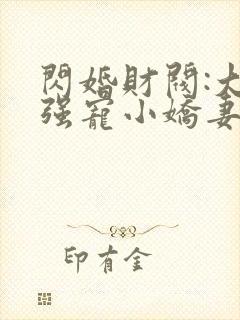 閃婚財閥:大
强寵小嬌妻
印有金